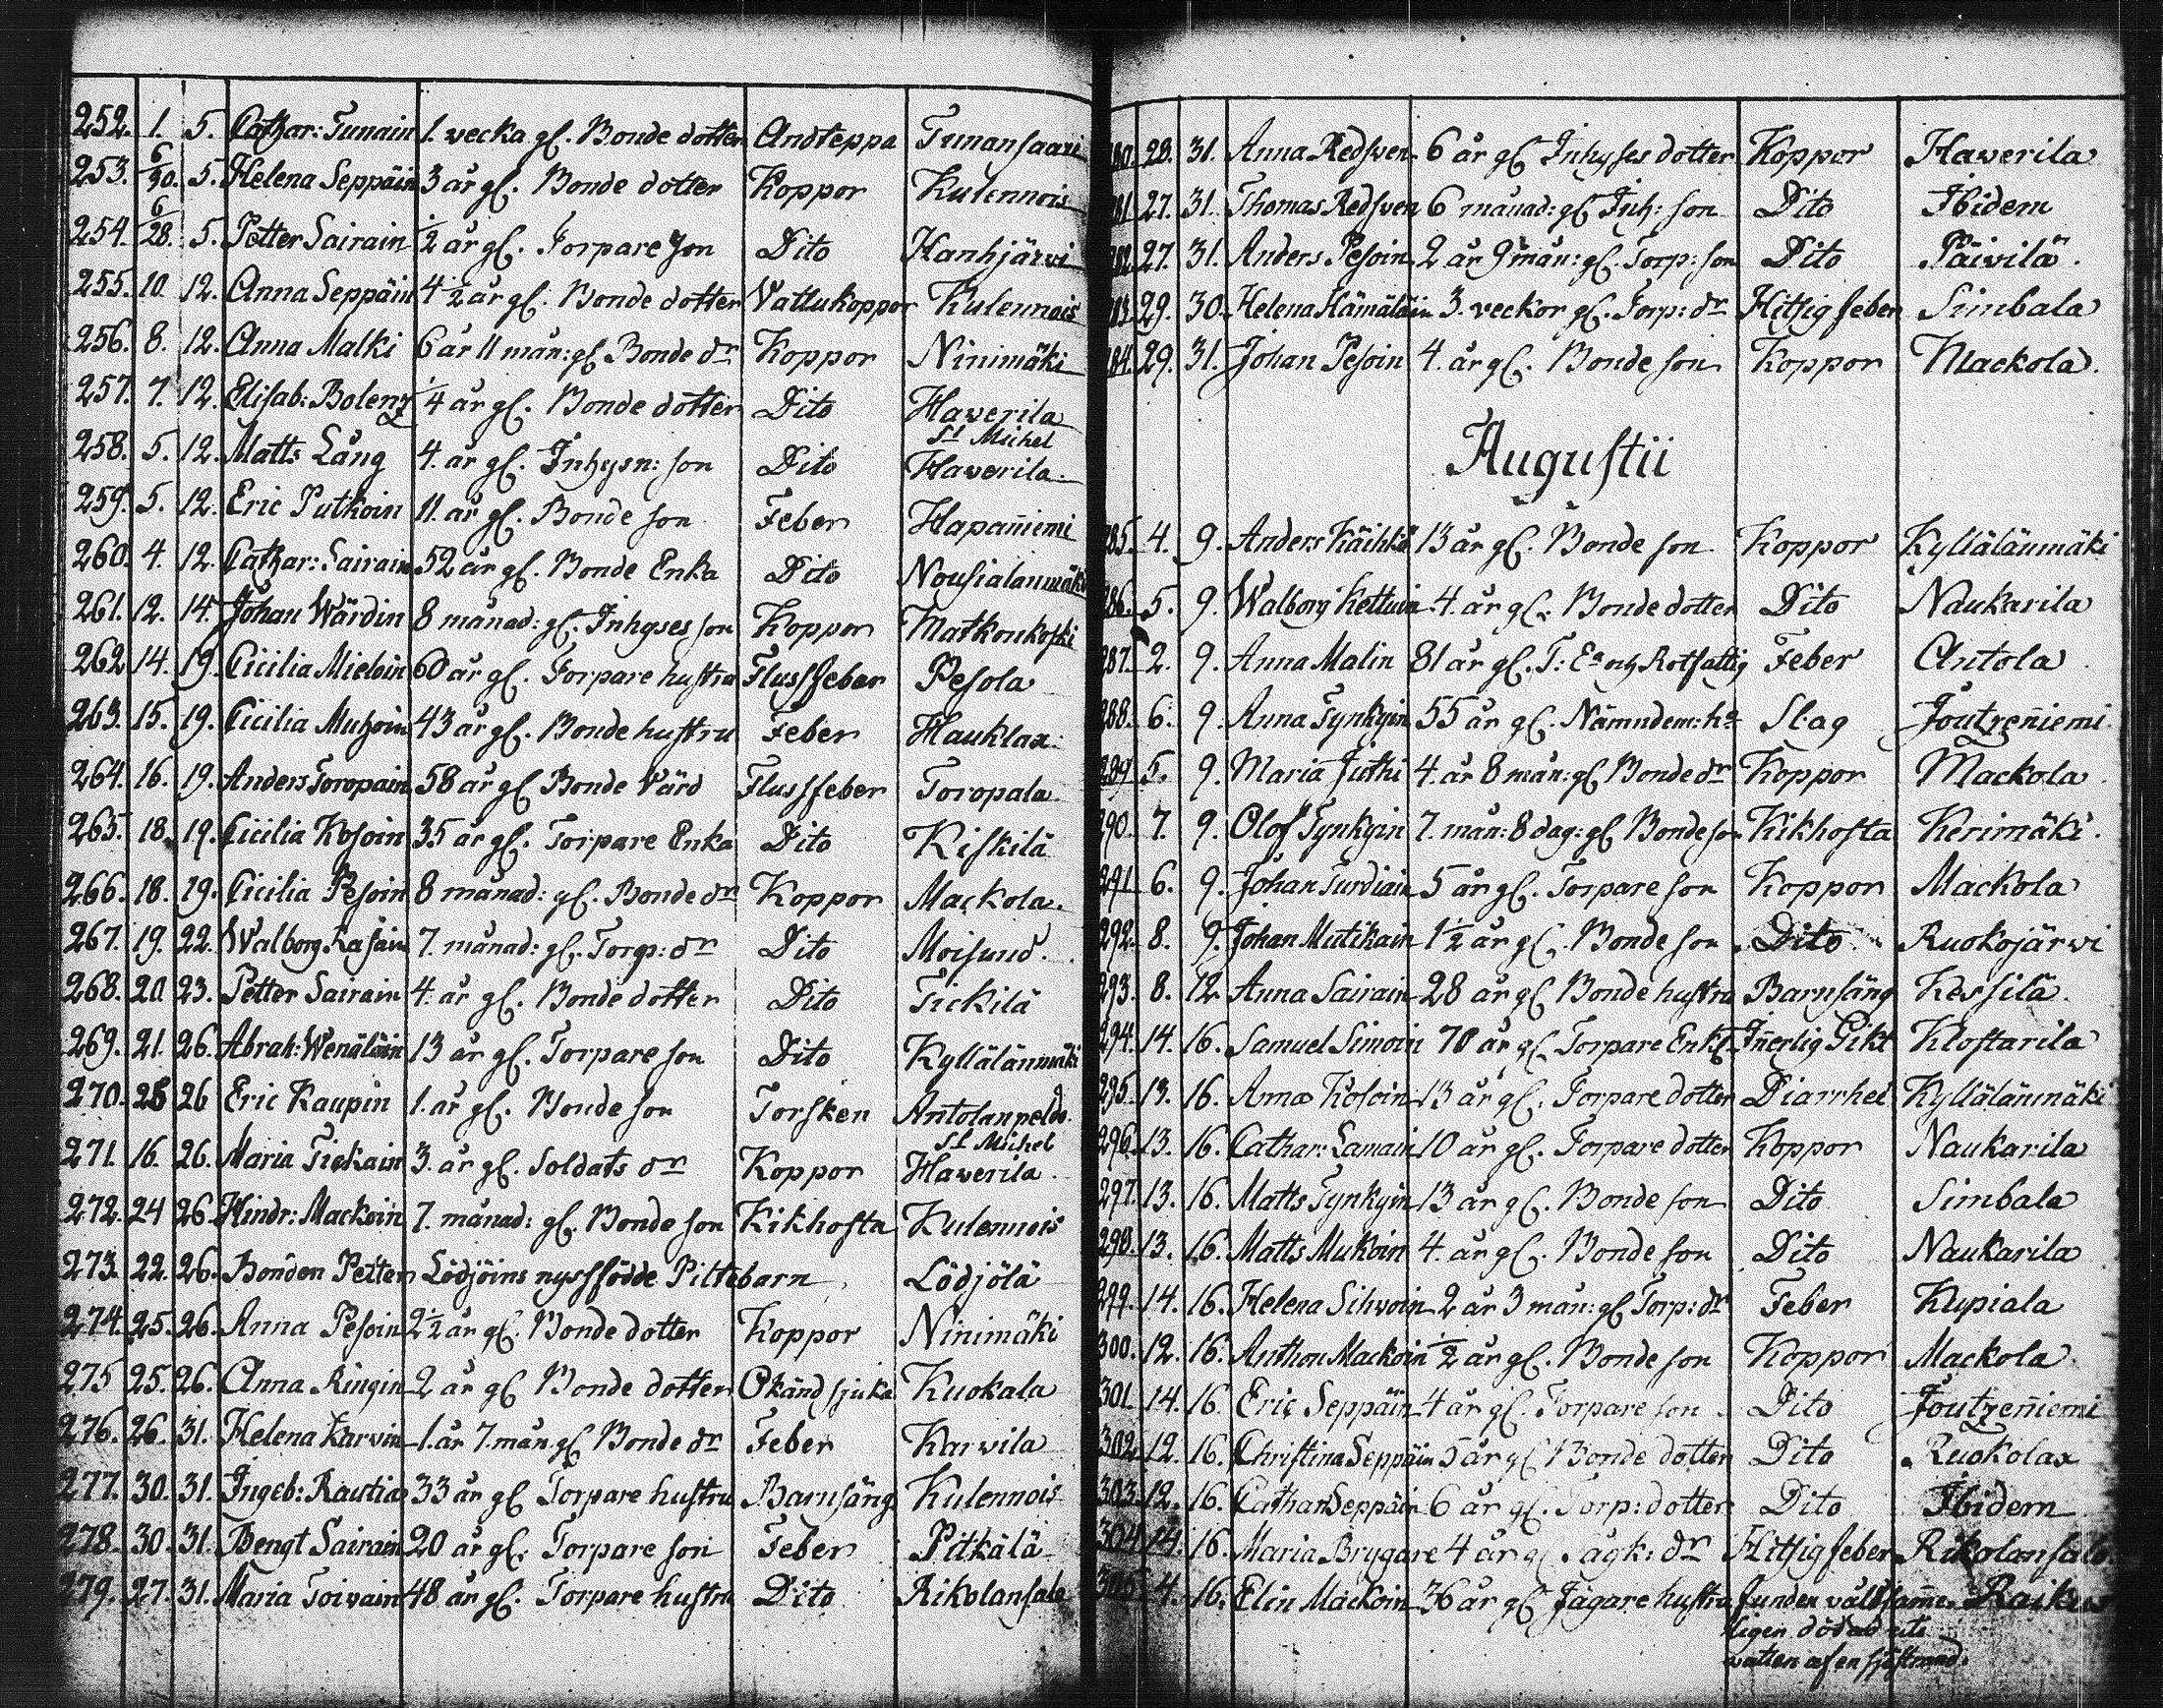 252. 1. 5. Cathar: Tunain 1. vecka gl. Bonde dotter Andteppa Tunansaari
253. 6/30. 5. Helena Seppäin 3 år gl. Bonde dotter Koppor Kulennois
254. 6/28. 5. Petter Sairain ½ år gl. Torpare son Dito Hanhjärvi
255. 10. 12. Anna Seppäin 4½ år gl. Bonde dotter Vattukoppor Kulennois
256. 8. 12. Anna Malki 6 år 11 mån: gl. Bonde dr Koppor Ninimäki
257. 7. 12. Elisab: Bolenz ¼ år gl. Bonde dotter Dito Hawerila
258. 5. 12. Matts Lång 4. år gl. Inhysn: son Dito St Michel Hawerila
259. 5. 12. Eric Putkoin 11. år gl. Bonde son Feber Hapan̄iemi
260. 4. 12. Cathar: Sairain 52 år gl. Bonde Enka Dito Nousialanmäki
261. 12. 14. Johan Wärdin 8 månad: gl. Inhyses son Koppor Matkonkoski
262 14. 19. Cicilia Mieloin 60 år gl. Torpare hustru Flussfeber Pesola
263. 15. 19. Cicilia Muhoin 43 år gl. Bonde hustru Feber Hauklax.
264. 16. 19. Anders Toropain 58 år gl. Bonde Värd Flussfeber Toropala
265. 18. 19. Cicilia Kosoin 35 år gl. Torpare Enka Dito Kiskilä
266. 18. 19. Cicilia Pesoin 8 månad: gl. Bonde dr Koppor Mackola.
267. 19. 22. Walborg Kasain 7. månad: gl. Torp: dr Dito Moisund.
268. 20. 23. Petter Sairain 4. år gl. Bonde dotter Dito Tickilä
269. 21. 26. Abrah: Wenäläin 13 år gl. Torpare son Dito Kyllälänmäki
270. 26 26 Eric Kaupin 1. år gl. Bonde son Torsken Antolanpeldo.
271. 16. 26. Maria Tickain 3. år gl. Soldats dr Koppor St Michel Hawerila.
272. 24 26. Hindr: Mackoin 7. månad: gl. Bonde son Kikhosta Kulennois
273. 22. 26. Bonden Petter Lödjöins nyssfödde Piltebarn Lödjölä
274. 25. 26. Anna Pesoin 2½ år gl. Bonde dotter Koppor Ninimäki
275 25. 26. Anna Ringin 2 år gl. Bonde dotter Okänd sjuka Kuokala
276. 26. 31. Helena Karvin 1. år 7. mån gl. Bonde dr Feber Karvila
277. 30. 31. Ingeb: Rautia 33 år gl. Torpare hustru Barnsäng Kulennois
278. 30. 31. Bengt Sairain 20 år gl. Torpare son Feber Pitkälä
279. 27. 31. Maria Toivain 48 år gl. Torpare hustru Dito Rikolansalo
280. 29. 31. Anna Redsven 6 år gl. Inhyses dotter Koppor Hawerila
281 27. 31. Thomas Redsven 6 månad: gl. Inh: son Dito Ibidem
282 27. 31. Anders Pesoin 2 år 9 mån: gl. Torp: son Dito Päivilä.
283. 29. 30. Helena Hämäläin 3. veckor gl. Torp: dr Hitsig feber Simbala
284. 29. 31. Johan Pesoin 4. år gl. Bonde son Koppor Mackola.
Augustii
285. 4. 9. Anders Käihkö 13 år gl. Bonde son Koppor Kyllälänmäki
286. 5. 9. Walborg Kettuin 4. år gl. Bonde dotter Dito Naukarila
287. 2. 9. Anna Malin 81 år gl. T: Ea och Rotfattig Feber Antola
288. 6. 9. Anna Tynkyin 55 år gl. Nämndem: ha Slag Joutzen̄iemi
289 5. 9. Maria Jutki 4. år 8 mån: gl Bonde dr Koppor Mackola
290. 7. 9. Olof Tynkyin 7. mån: 8 dag: gl Bonde son Kikhosta Kerimäki.
291 6. 9. Johan Turdiain 5 år gl. Torpare son Koppor Mackola
292. 8. 9. Johan Mutikain 1½ år gl. Bonde son Dito Ruokojärvi
293. 8. 12 Anna Sairain 28 år gl Bonde hustru Barnsäng Kessilä.
294. 14. 16. Samuel Simoin 70 år gl. Torpare Enkl. In̄erlig Gikt Klostarila
295. 13. 16. Anna Kosoin 13 år gl. Torpare dotter Diarrhet Kyllälänmäki
296. 13. 16. Cathar: Lamain 10 år gl. Torpare dotter Koppor Naukarila
297. 13. 16. Matts Tynkyin 13 år gl. Bonde son Dito Simbala
298. 13. 16. Matts Mukoin 4. år gl. Bonde son Dito Naukarila
299. 14. 16. Helena Sihvoin 2 år 3 mån: gl Torp: dr Feber Kupiala
300. 12. 16. Anthon Mackoin ½ år gl. Bonde son Koppor Mackola.
301. 14. 16. Eric Seppäin 4 år gl. Torpare son Dito Joutzen̄iemi
302 12. 16. Christina Seppäin 5 år gl Bonde dotter Dito Ruokolax
303. 12. 16. Cathar Seppäin 6 år gl. Torp: dotter Dito Ibidem
304 14. 16. Maria Brygare 4 år gl dr Hitsig feber Rikolansalo
305 4. 16. Elin Mackoin 36 år gl Jägare hustru Funden våldsam̄e-
ligen dödad uti
watten af en sjöstrand.